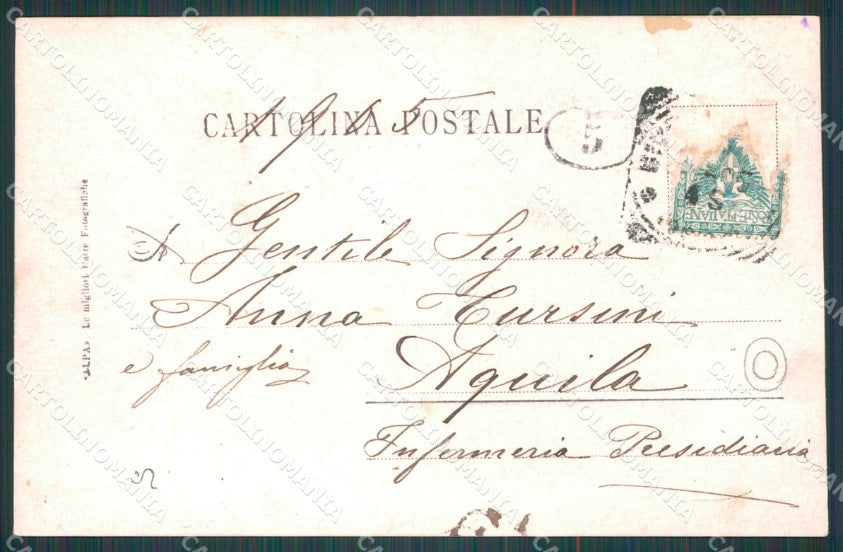 CARTOLINA POSTALE
1915
5
POSTE ITALIANE
Gentile Signora
Anna Tursini
e famiglia
Aquila
Infermeria Presidiaria
«ALPA» Le migliori Carte Fotografiche
CARTOLINOMANIA